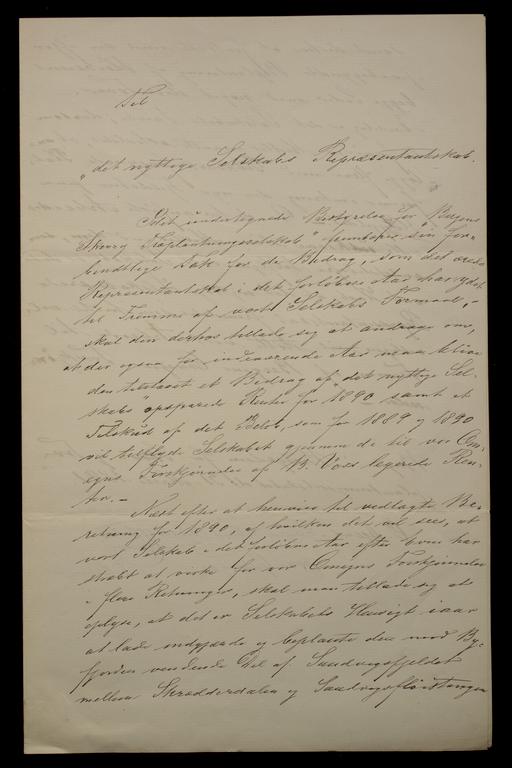 Til
"det nyttige Selskabs Repræsentantskab.
Idet undertegnede Bestyrelse for "Bergens
Skov og Træplantningsselskab" frembærer sin for-
bindtlige Tak for de Bidrag, som det ærede
Repræsentantskab i det forløbne Aar har ydet
til Fremme af vort Selskabs Formaal, -
skal den derhos tillade sig at andrage om,
at der ogsaa for indeværende Aar maa blive
den tilstaaet et Bidrag af "det nyttige Sel-
skabs" opsparede Renter for 1890 samt et
Tilskud af det Beløb, som for 1889 og 1890
vil tilflyde Selskabet gjennem de til vor Om-
egns Forskjønnelse af B. Voss legerede Ren-
ter. -
Næst efter at henvise til vedlagte Be-
retning for 1890, af hvilken det vil sees, at
vort Selskab i det forløbne Aar efter Evne har
stræbt at virke for vor Omegns Forskjønnelse
i flere Retninger, skal man tillade sig at
oplyse, at det er Selskabets Hensigt i aar
at lade indgjærde og beplante den mod By-
fjorden vendende Del af Sandvigsfjeldet
mellem Skrædderdalen og Sandvigsfløistangen